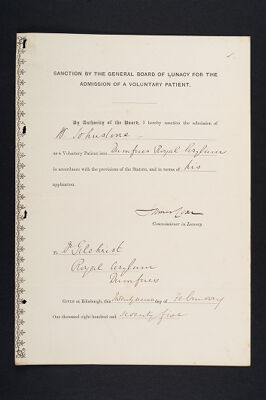 SANCTION BY THE GENERAL BOARD OF LUNACY FOR THE
ADMISSION OF A VOLUNTARY PATIENT.
By Authority of the Board, I hereby sanction the admission of
W Johnstone
as a Voluntary Patient into Dumfries Royal Asylum
in accordance with the provisions of the Statute, and in terms of his
application.
Commissioner in Lunacy
To Dr Gilchrist
Royal Asylum
Dumfries
Given at Edinburgh, this day of February
One thousand eight hundred and seventy five